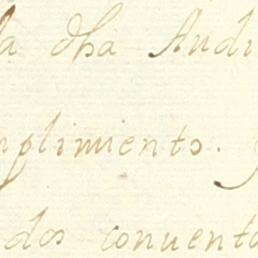 la dha Audi
mplimiento.
dos conuento